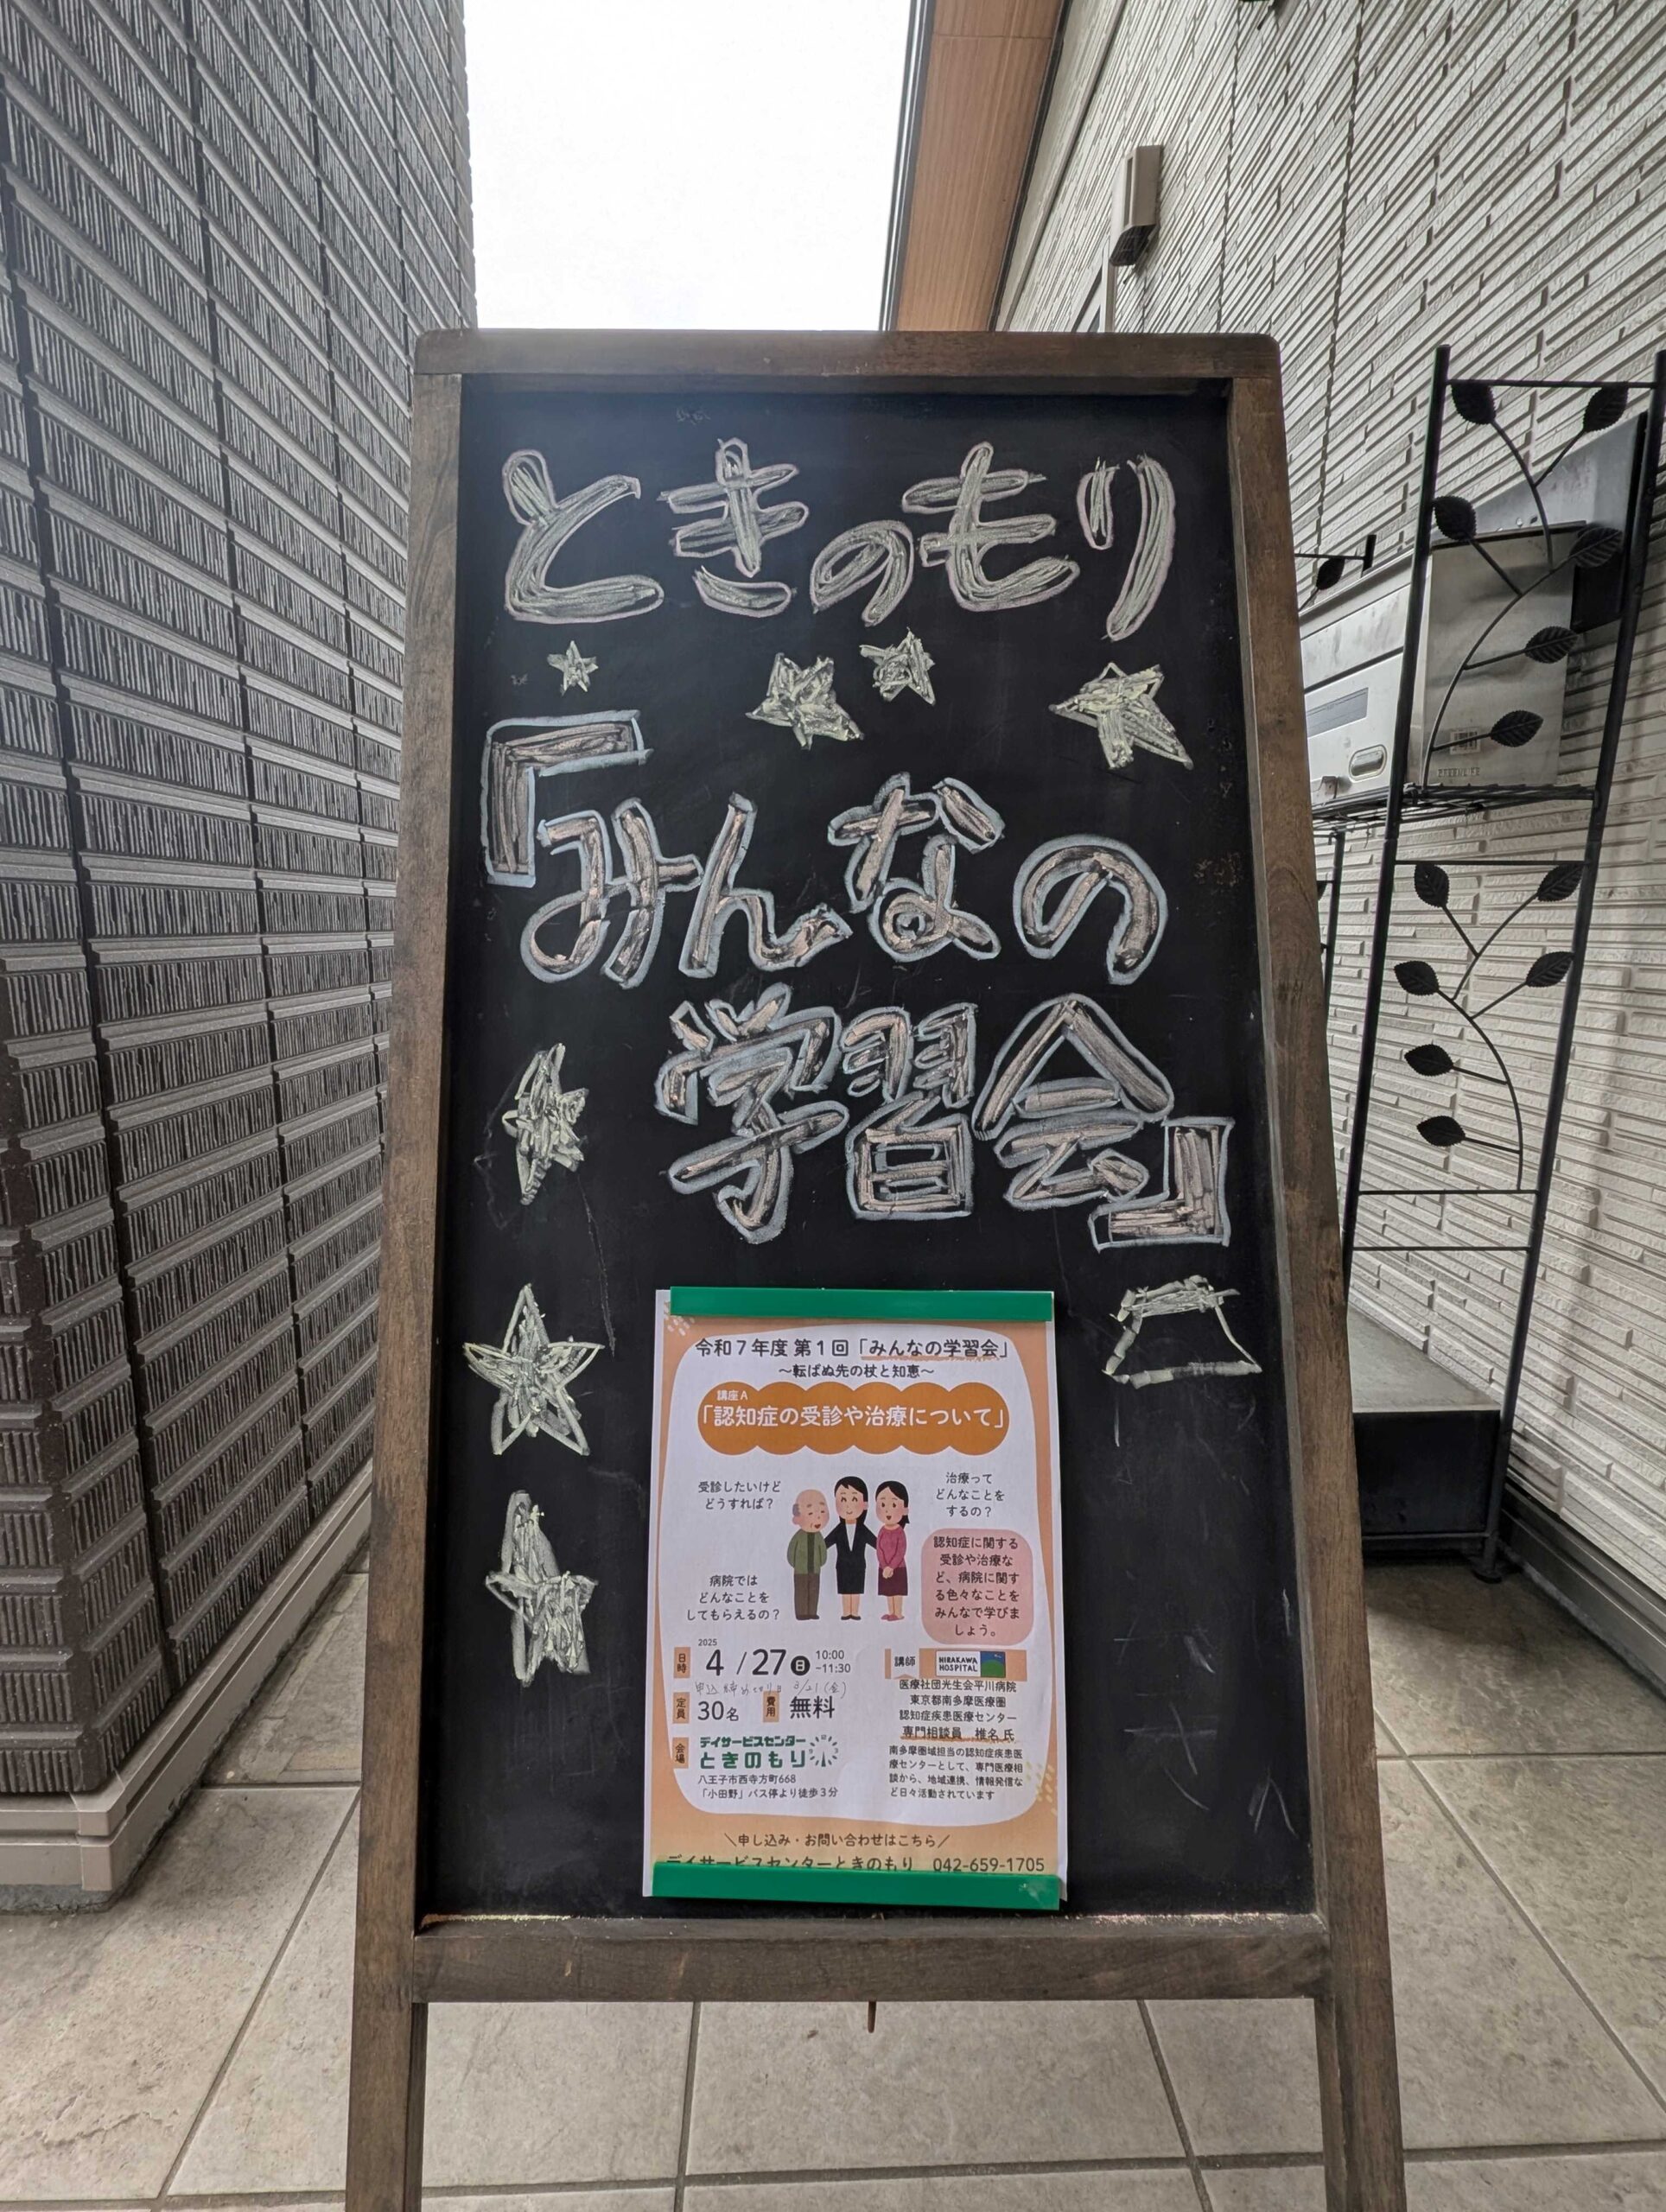 ときのもり
「みんなの
学習会」
令和7年度 第1回「みんなの学習会」
～転ばぬ先の杖と知恵～
講座A
「認知症の受診や治療について」
受診したいけど
どうすれば?
治療って
どんなことを
するの?
病院では
どんなことを
してもらえるの?
認知症に関する
受診や治療な
ど、病院に関す
る色々なことを
みんなで学びま
しょう。
日時
2025
4/27日 10:00
~11:30
申込締め切り
定員 30名
費用 無料
会場
デイサービスセンター
ときのもり
八王子市西寺方町668
「小田野」バス停より徒歩3分
講師
HIRAKAWA
HOSPITAL
医療社団光生会平川病院
東京都南多摩医療圏
認知症疾患医療センター
専門相談員 椎名 氏
南多摩圏域担当の認知症疾患医
療センターとして、専門医療相
談から、地域連携、情報発信な
ど日々活動されています
＼申し込み・お問い合わせはこちら／
デイサービスセンターときのもり 042-659-1705